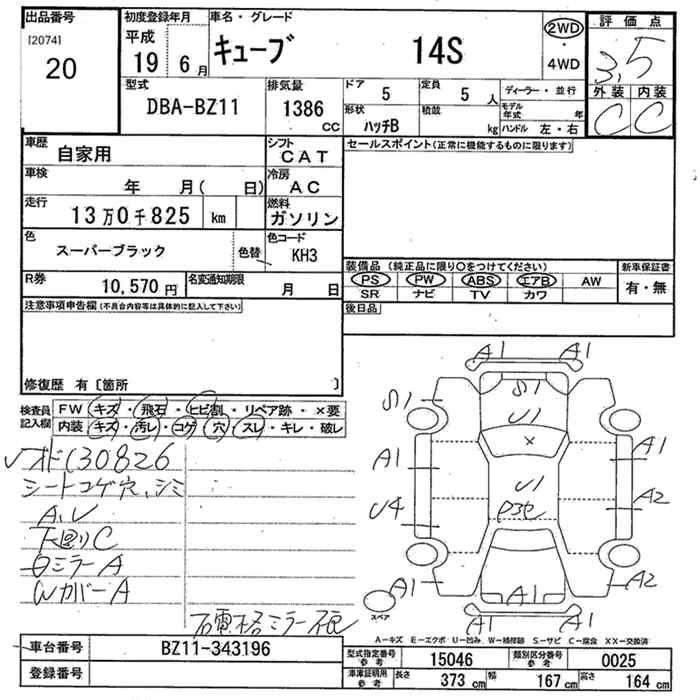 出品番号
[2074]
20
初度登録年月
平成
19 6月
車名・グレード
キューブ 14S
2WD
・
4WD
評価点
3.5
外装 内装
C C
型式
DBA-BZ11
排気量
1386
CC
ドア
5
定員
5 人
形状
ハッチB
積載
kg
ディーラー・並行
モデル年式 年
ハンドル 左・右
車歴
自家用
シフト
CAT
車検
年 月( 日)
冷房
AC
走行
13万0千825 km
燃料
ガソリン
色
スーパーブラック
色替
色コード
KH3
R券
10,570円
名変通知期限
月 日
セールスポイント(正常に機能するものに限ります)
装備品 (純正品に限り○をつけてください)
PS PW ABS エアB AW
SR ナビ TV カワ
新車保証書
有・無
後日品
注意事項申告欄(不具合内容等は具体的に記入して下さい)
修復歴 有〔箇所 〕
検査員記入欄
FW キズ・飛石・ヒビ割・リペア跡・×要
内装 キズ・汚レ・コゲ・穴・スレ・キレ・破レ
オド130826
シートコゲ穴、シミ
A、U
下廻りC
ミラーA
WカバーA
格ミラー
A1 A1
S1 S1
U1
×
A1 A1
U1
U4 A2
A1 A1 A2
A1 A1
スペア
A-キズ E-エクボ U-凹み W-補修跡 S-サビ C-腐食 XX-交換済
車台番号
BZ11-343196
登録番号
型式指定番号 参考
15046
類別区分番号 参考
0025
車庫証明用 参考
長さ 373 cm
幅 167 cm
高さ 164 cm